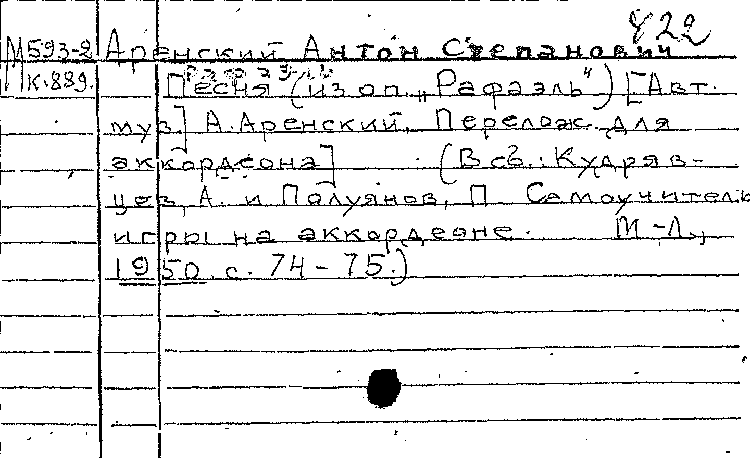 822
М593-2 Аренский Антон Степанович
МК.889. Песня (из оп. „Рафаэль") [Авт.
муз.] А. Аренский. Перелож. для
аккордеона] (В сб.: Кудряв-
цев, А. и Полуянов, П. Самоучитель
игры на аккордеоне. М.-Л.,
1950. с. 74-75.)